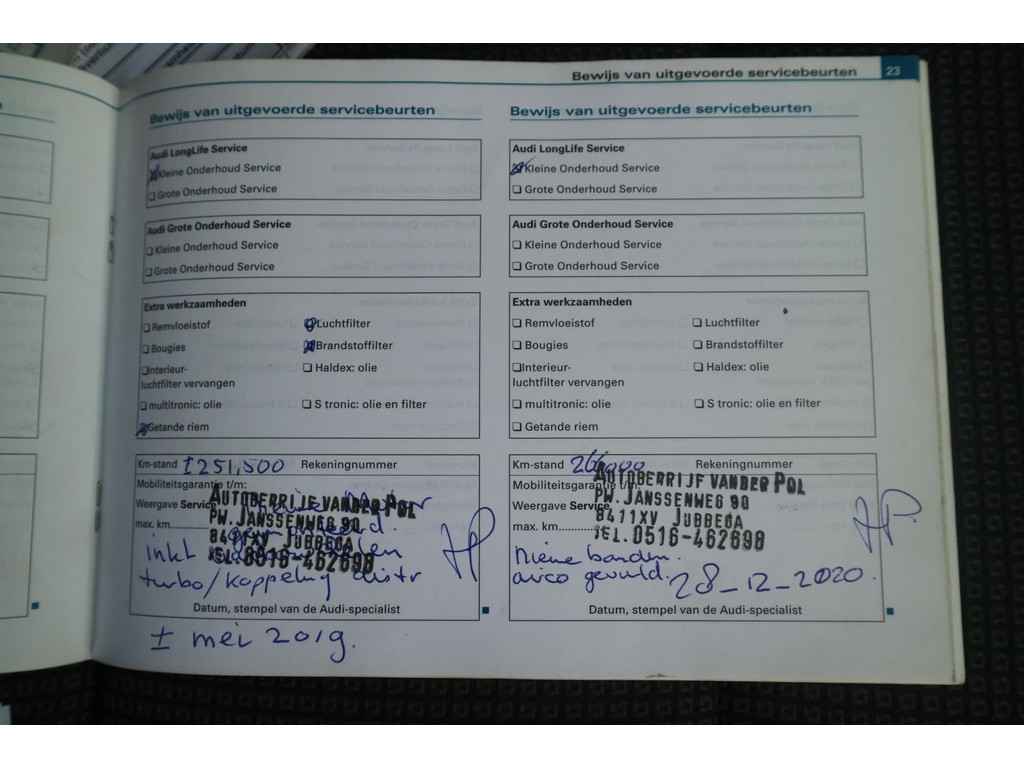 Bewijs van uitgevoerde servicebeurten 23
Bewijs van uitgevoerde servicebeurten
Audi LongLife Service
Kleine Onderhoud Service
Grote Onderhoud Service
Audi Grote Onderhoud Service
Kleine Onderhoud Service
Grote Onderhoud Service
Extra werkzaamheden
Remvloeistof
Luchtfilter
Bougies
Brandstoffilter
Interieur-
luchtfilter vervangen
Haldex: olie
multitronic: olie
S tronic: olie en filter
Getande riem
Km-stand ±251,500 Rekeningnummer
Mobiliteitsgarantie t/m:
Weergave Service
max. km
AUTOBERRIJF VANDER POL
PW. JANSSENWEG 90
8411XV JUBBEGA
TEL. 0516-462698
inkl
turbo/koppeling distr
Datum, stempel van de Audi-specialist
± mei 2019.
Bewijs van uitgevoerde servicebeurten
Audi LongLife Service
Kleine Onderhoud Service
Grote Onderhoud Service
Audi Grote Onderhoud Service
Kleine Onderhoud Service
Grote Onderhoud Service
Extra werkzaamheden
Remvloeistof
Luchtfilter
Bougies
Brandstoffilter
Interieur-
luchtfilter vervangen
Haldex: olie
multitronic: olie
S tronic: olie en filter
Getande riem
Km-stand Rekeningnummer
Mobiliteitsgarantie t/m:
Weergave Service
max. km
AUTOBERRIJF VANDER POL
PW. JANSSENWEG 90
8411XV JUBBEGA
TEL. 0516-462698
Nieuwe banden.
airco gevuld. 28-12-2020.
Datum, stempel van de Audi-specialist